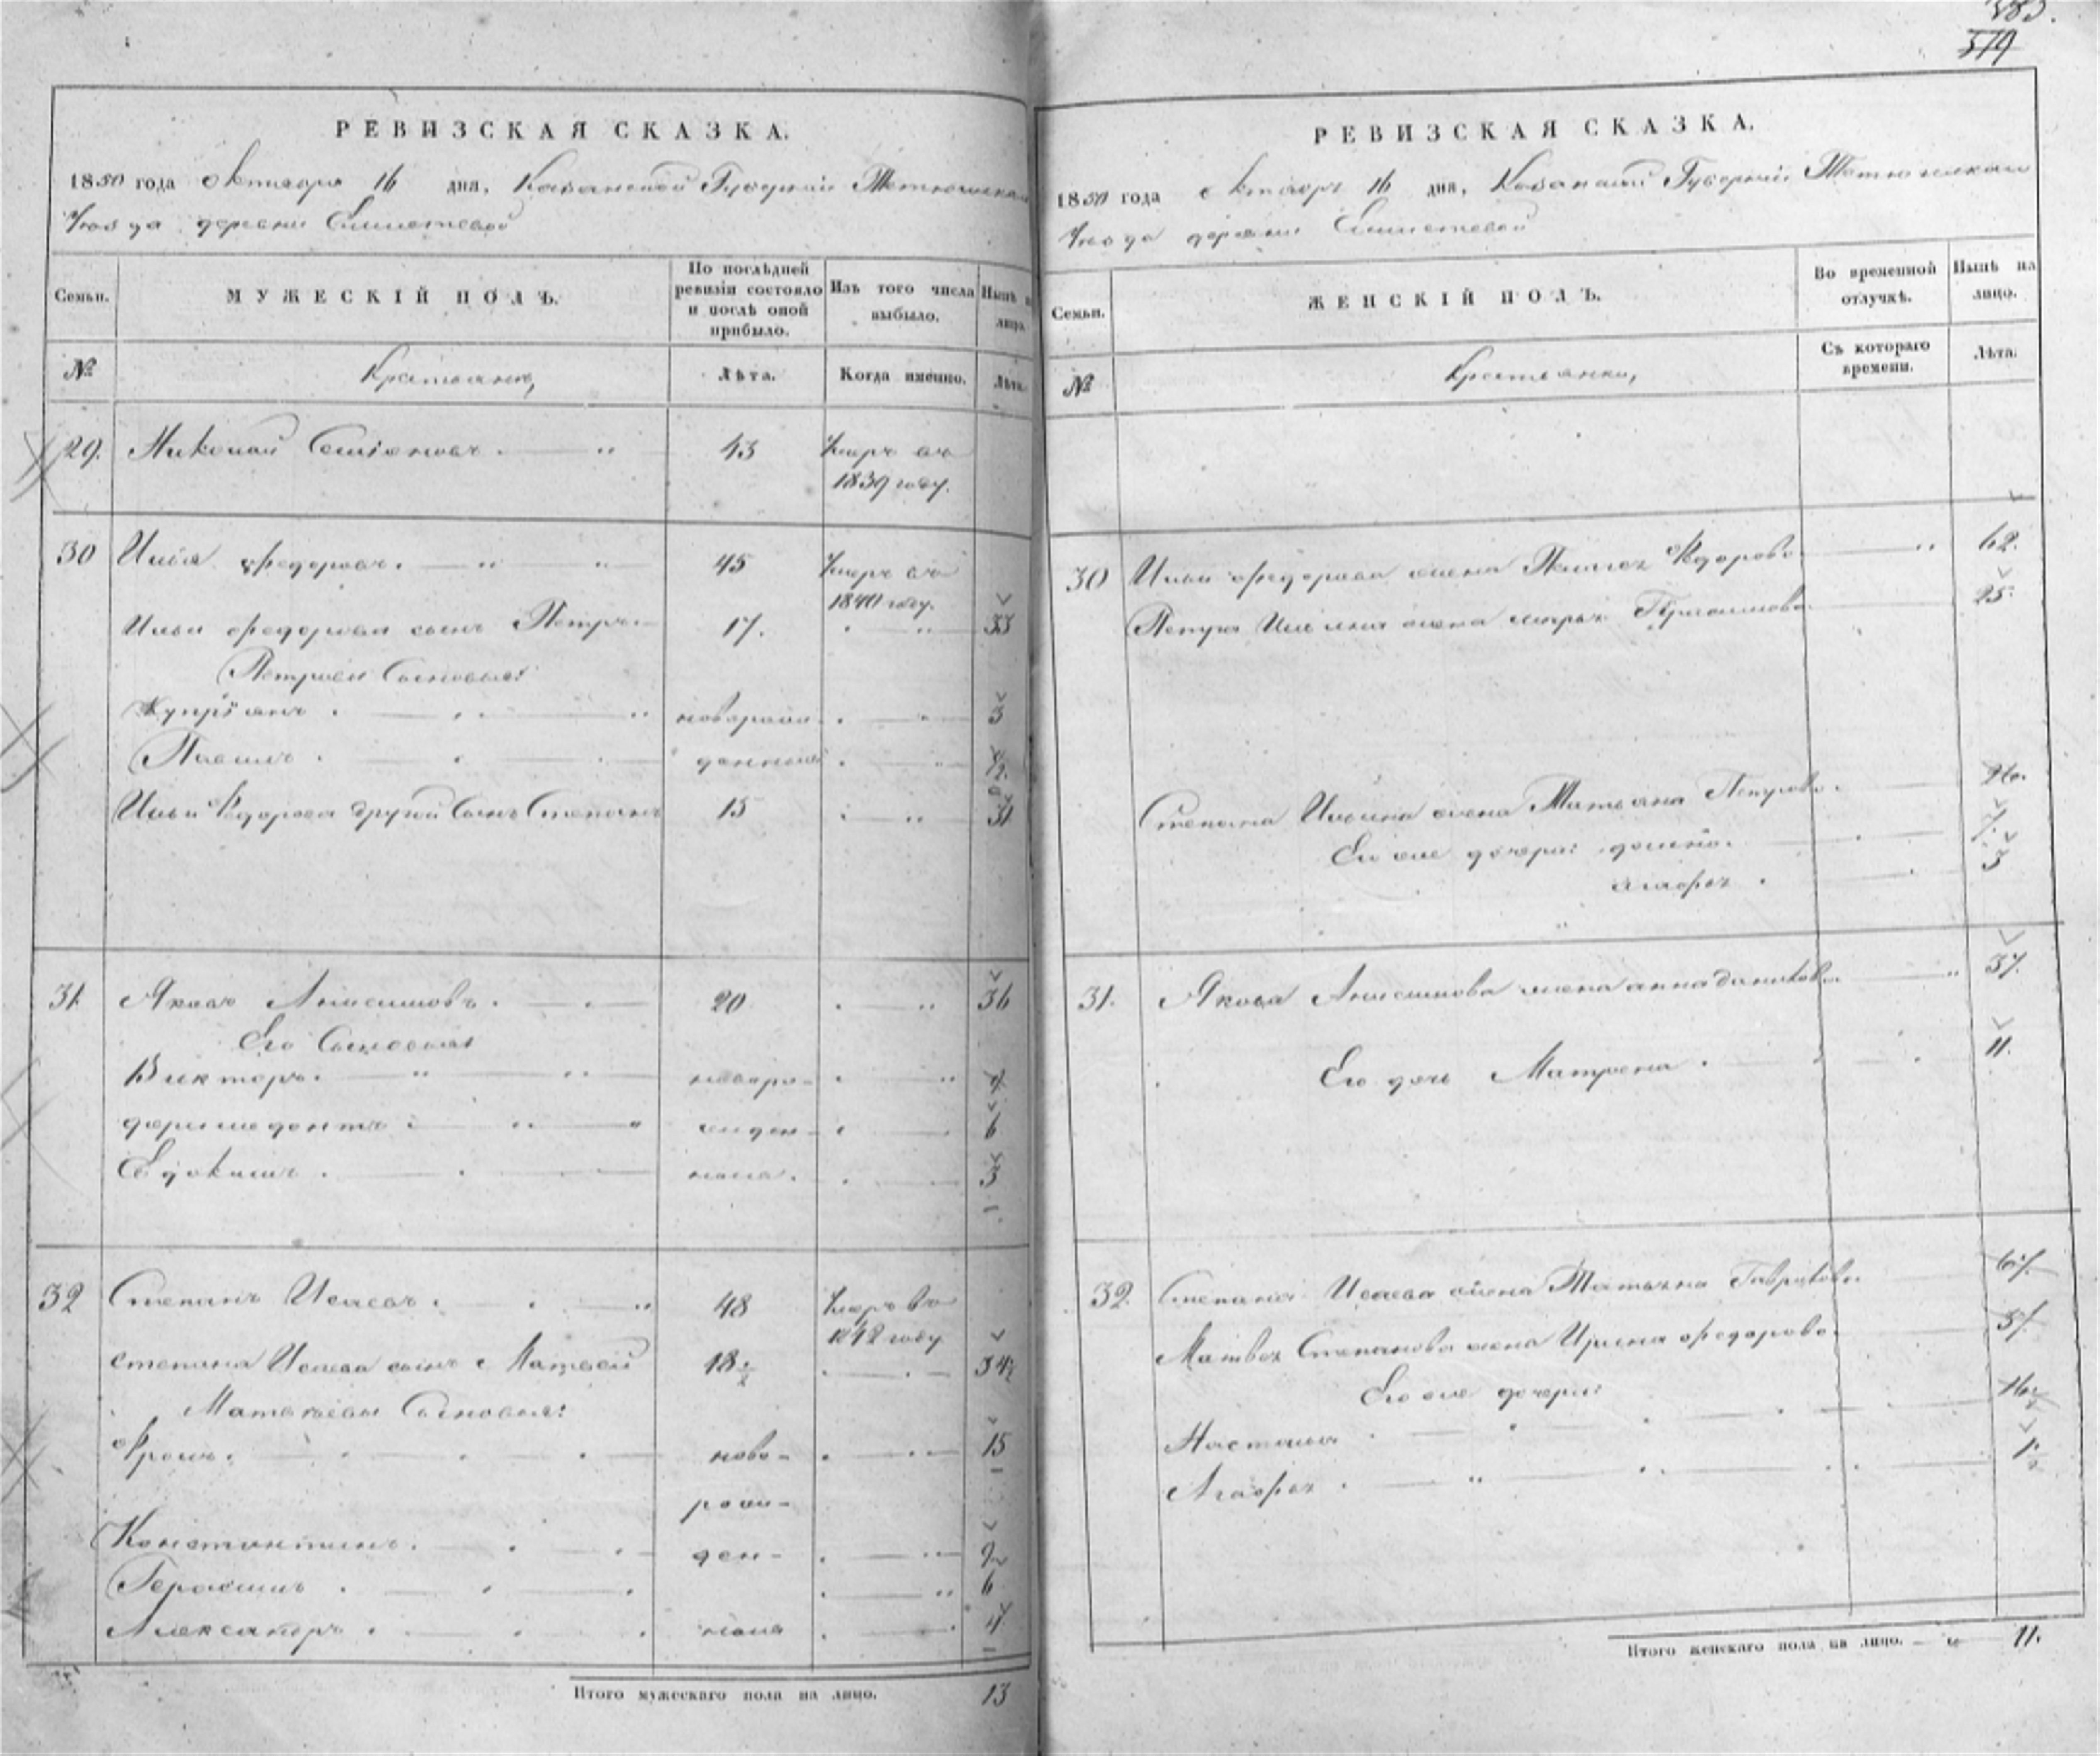 383.
379
РЕВИЗСКАЯ СКАЗКА.
1850 года октября 16 дня, Казанской Губернии Тетюшскаго
Уезда деревни
Семьи.
МУЖЕСКІЙ ПОЛЪ.
По послѣдней ревизіи состояло и послѣ оной прибыло.
Изъ того числа выбыло.
Нынѣ на лицо.
№
Крестьяне,
Лѣта.
Когда именно.
Лѣта.
29. Николай Семіоновъ 43 Умеръ въ
1839 году.
30 Илья Федоровъ. 45 Умеръ въ
1840 году.
Ильи Федорова сынъ Петръ 17. 33
Петровы Сыновья:
Купріянъ новорож- 3
Павелъ денныя
Ильи Федорова другой сынъ Степанъ 15 31
31. Яковъ Анисимовъ. 20 36
Его Сыновья:
Викторъ. новоро-
Ферmедонтъ жден- 6
Евдокимъ. ныя. 3
32 Степанъ Исаевъ. 48 Умеръ въ
1842 году
Степана Исаева сынъ Матвей 18½ 34½
Матвеевы Сыновья:
Фролъ. ново- 15
рож-
Константинъ. ден- 9
Герасимъ 6
Александръ. ныя 4
Итого мужескаго пола на лицо. 13
РЕВИЗСКАЯ СКАЗКА.
1850 года октября 16 дня, Казанской Губерніи Тетюшскаго
Уезда деревни
Семьи.
ЖЕНСКІЙ ПОЛЪ.
Во временной отлучкѣ.
Нынѣ на лицо.
№
Крестьянки,
Съ котораго времени.
Лѣта.
30 Ильи Федорова жена Федорова 62.
Петра Ильина жена Марья Герасимова 25.
Степана Ильина жена Татьяна Петрова. 26.
Его же дочери: 7.
Агафья 3
31. Якова Анисимова жена Анна Данилова 37.
Его дочь Матрена 11.
32. Степана Исаева жена Татьяна Гаврилова 67.
Матвея Степанова жена Ирина Федорова. 37.
Его же дочери:
Настасья 16½
Агафья 1½
Итого женскаго пола на лицо. 11.